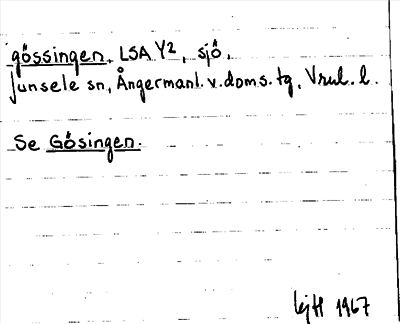 gössingen, LSA Y2, sjö,
Junsele sn, Ångermanl. v. doms. tg,
Se Gösingen.
1967